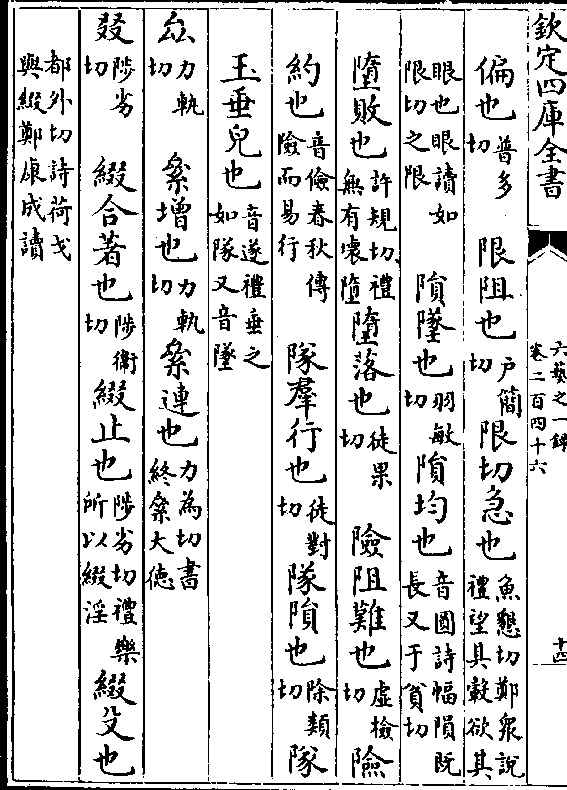 欽定四庫全書 六藝之一錄 卷二百四十六 十四
偏也 普多切 限阻也 户簡切 限切急也 魚懇切鄭衆說禮望具轂欲其
眼也眼讀如限切之限 隕墜也 羽敏切 隕均也 音圓詩幅隕既長又于貧切
墮敗也 許規切禮無有壞墮 墮落也 徒果切 險阻難也 虚檢切 險
約也 音儉春秋傳險而易行 隊羣行也 徒對切 隊隕也 除類切 隊
玉垂兒也 音遂禮垂之如隊又音墜
厽 力軌切 絫增也 力軌切 絫連也 力為切書終絫大德
叕 陟劣切 綴合著也 陟衛切 綴止也 陟劣切禮樂所以綴淫 綴殳也
都外切詩荷戈與綴鄭康成讀